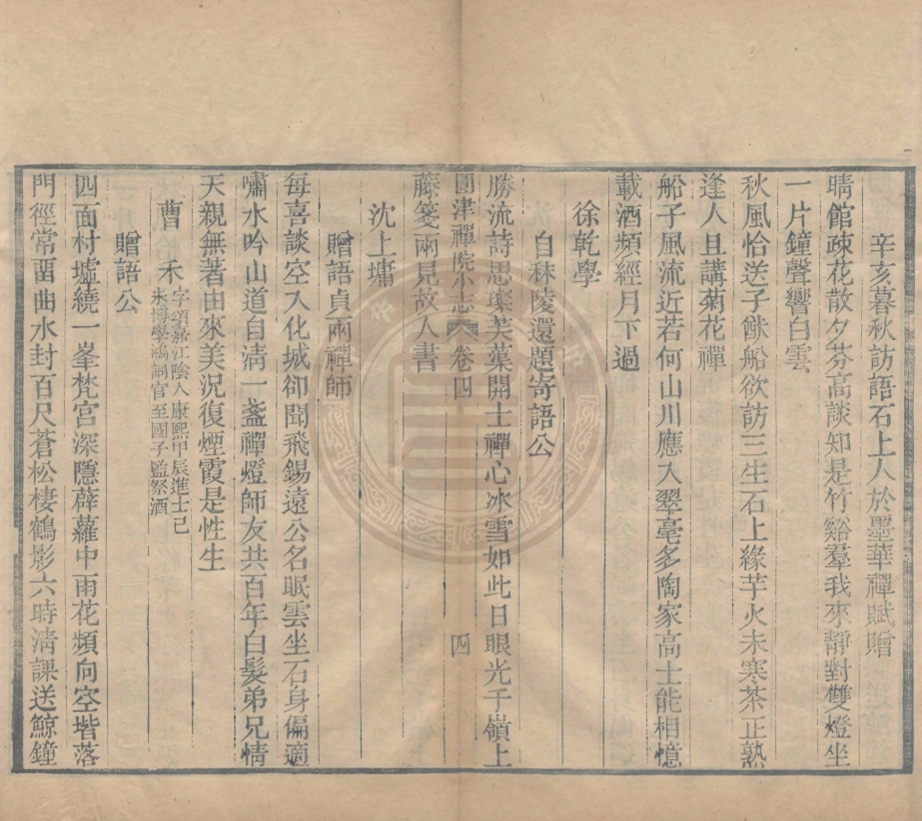 辛亥暮秋訪語石上人於墨華禪賦贈
晴館疎花散夕芬高談知是竹谿羣我來靜對雙燈坐
一片鐘聲響白雲
秋風恰送子猷船欲訪三生石上緣芋火未寒茶正熟
逢人且講菊花禪
船子風流近若何山川應入翠毫多陶家高士能相憶
載酒頻經月下過
徐乾學
自秣陵還題寄語公
勝流詩思璨芙蕖開士禪心冰雪如此日眼光千嶺上
圓津禪院小志 卷四 四
藤箋兩見故人書
沈上墉
贈語貞兩禪師
每喜談空入化城卻聞飛錫遠公名眠雲坐石身偏適
嘯水吟山道自清一盞禪燈師友共百年白髮弟兄情
天親無著由來美況復煙霞是性生
曹禾 字頌嘉江陰人康熙甲辰進士己
未博學鴻詞官至國子監祭酒
贈語公
四面村墟繞一峯梵宫深隱薜蘿中雨花頻向空堦落
門徑常畱曲水封百尺蒼松棲鶴影六時淸課送鯨鐘